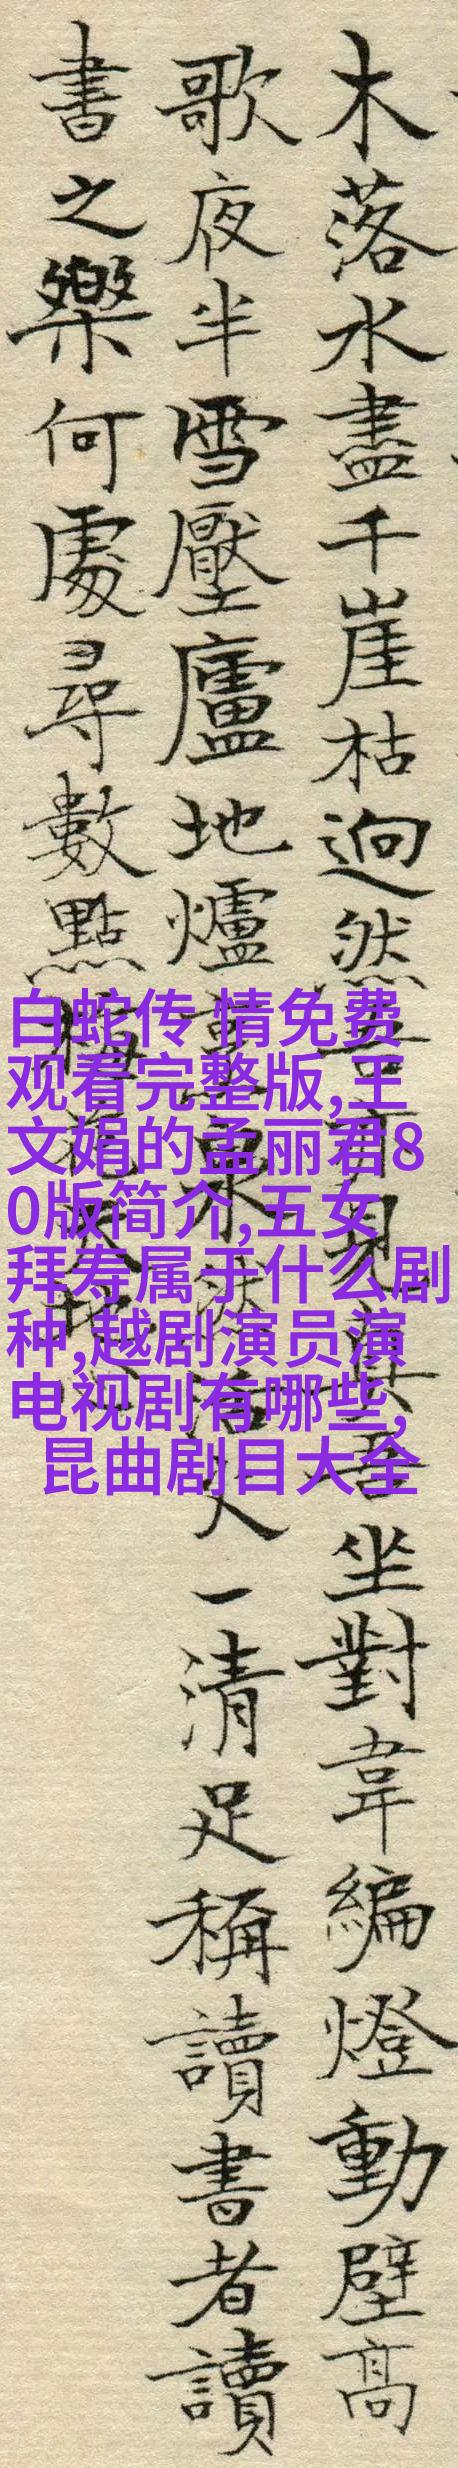 木落水盡千崖枯迥然吾亦見真吾坐對韋編燈動壁高
歌夜半雪壓廬地爐泉然活火一清足稱讀書者讀
書之樂何處尋數點梅花天地心
白蛇传 情免费
观看完整版,王
文娟的孟丽君8
0版简介,五女
拜寿属于什么剧
种,越剧演员演
电视剧有哪些,
昆曲剧目大全